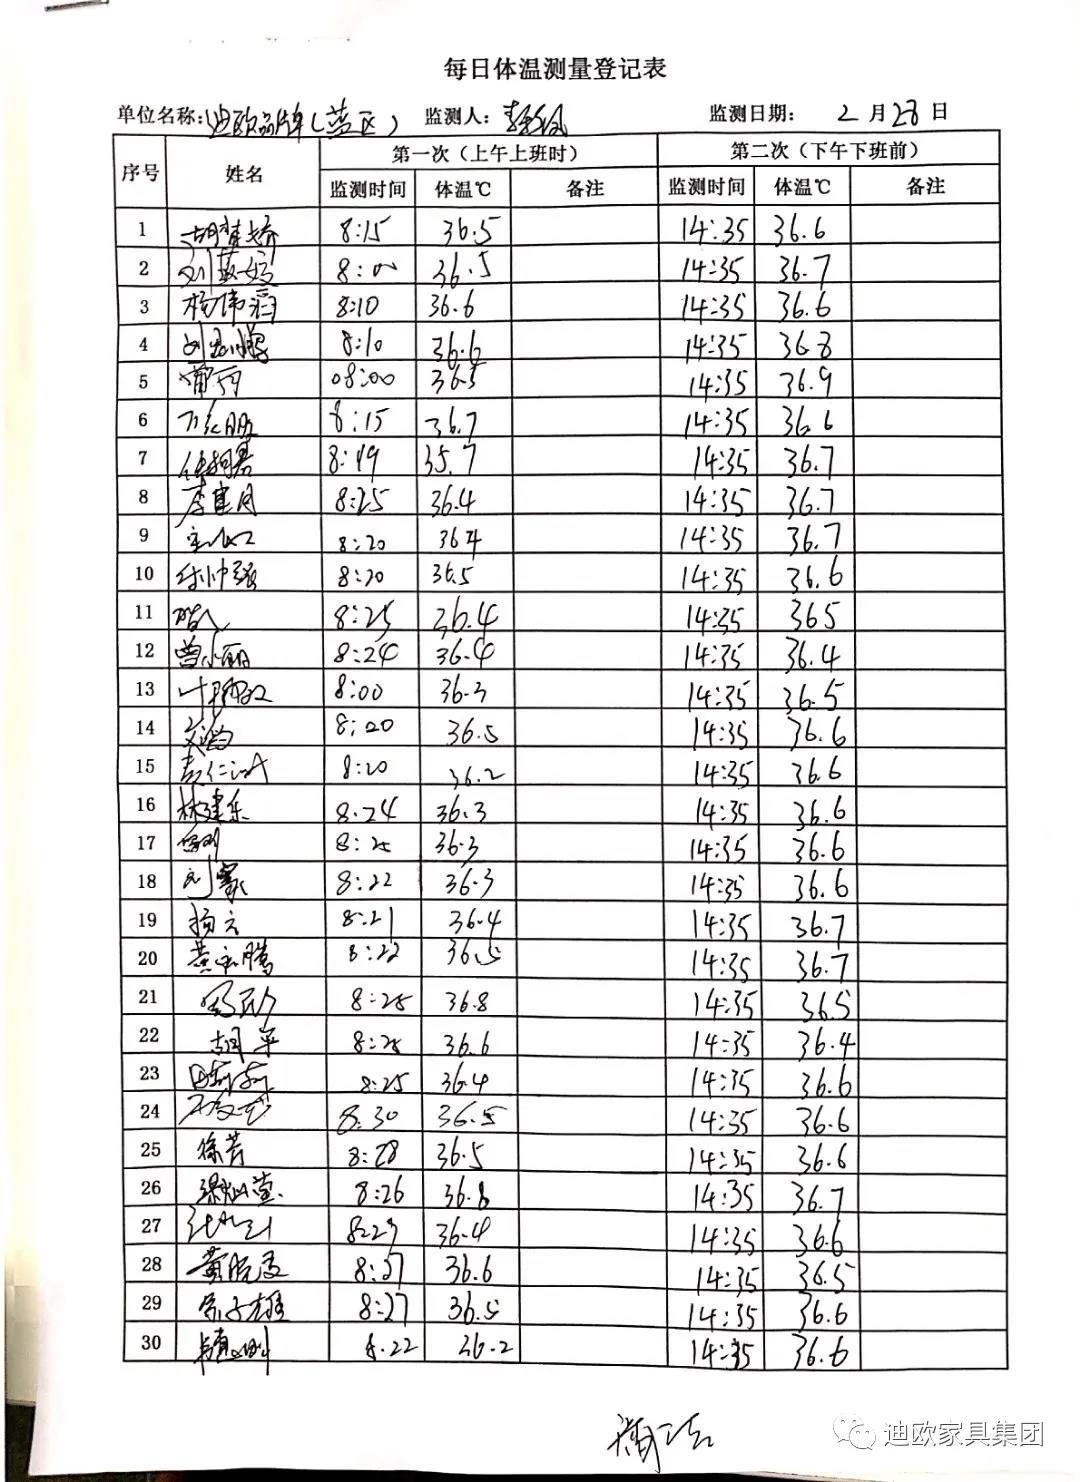 每日体温测量登记表
单位名称: 迪欧品牌(蓝区) 监测人: 监测日期: 2月28日
序号 姓名 第一次（上午上班时） 第二次（下午下班前）
监测时间 体温℃ 备注 监测时间 体温℃ 备注
1 胡梦娇 8:15 36.5 14:35 36.6
2 8:00 36.5 14:35 36.7
3 杨伟 8:10 36.6 14:35 36.6
4 8:10 36.6 14:35 36.8
5 08:00 36.5 14:35 36.9
6 8:15 36.7 14:35 36.6
7 8:19 35.7 14:35 36.7
8 李建月 8:25 36.4 14:35 36.7
9 8:20 364 14:35 36.7
10 8:20 36.5 14:35 36.6
11 8:25 36.4 14:35 365
12 曾小丽 8:24 36.4 14:35 36.4
13 8:00 36.3 14:35 36.5
14 8:20 36.5 14:35 36.6
15 8:20 36.2 14:35 36.6
16 林建乐 8.24 36.3 14:35 36.6
17 8:25 36.3 14:35 36.6
18 8:22 36.3 14:35 36.6
19 杨云 8:21 36.4 14:35 36.7
20 8:22 36.5 14:35 36.7
21 8:25 36.8 14:35 36.5
22 胡平 8:25 36.6 14:35 36.4
23 田莉莉 8:25 36.4 14:35 36.6
24 8:30 36.5 14:35 36.6
25 徐芳 8:28 36.5 14:35 36.6
26 8:26 36.8 14:35 36.7
27 8:29 36.4 14:35 36.6
28 黄晓 8:27 36.6 14:35 36.5
29 8:27 36.5 14:35 36.6
30 8.22 36.2 14:35 36.6
迪欧家具集团